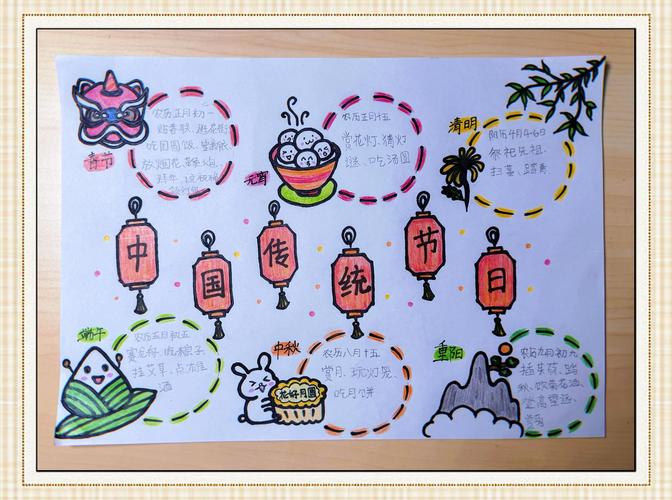 春节
农历正月初一
贴春联、逛花街
吃团圆饭、穿新衣
放烟花、鞭炮、
拜年、说祝福
元宵
农历正月十五
赏花灯、猜灯
谜、吃汤圆
清明
阳历4月4-6日
祭祀先祖、
扫墓、踏青
中国传统节日
端午
农历五月初五
赛龙舟、吃粽子
挂艾草、点雄黄
酒
中秋
花好月圆
农历八月十五
赏月、玩灯笼、
吃月饼
重阳
农历九月初九
插茱萸、踏
秋、饮菊花酒、
登高望远、
赏菊